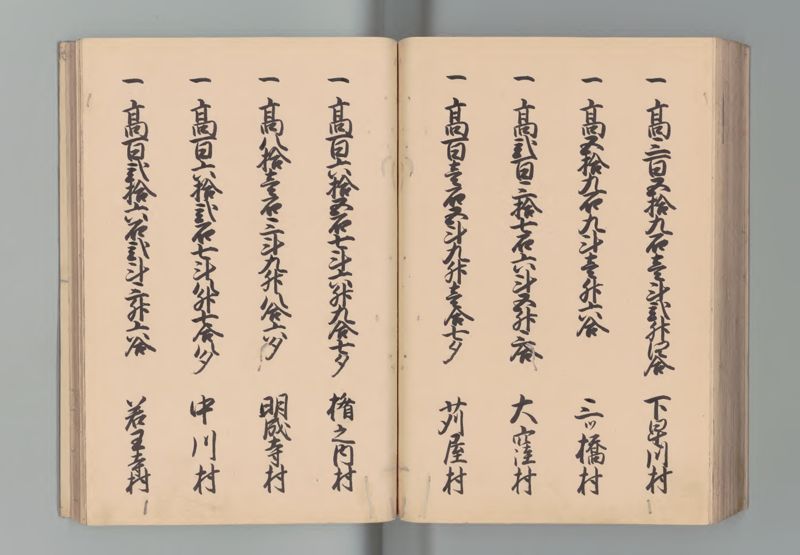 一 高三百五拾九石壱斗弐升四合 下早川村
一 高五拾九石九斗壱升六合 三ツ橋村
一 高弐百三拾七石六斗五升六合 大窪村
一 高百壱石五斗九升壱合七夕 苅屋村
一 高百六拾五石七斗六升九合七夕 楯之内村
一 高八拾壱石三斗九升八合六夕 明成寺村
一 高百六拾弐石七斗八升七合八夕 中川村
一 高百弐拾六石弐斗三升六合 若王寺村